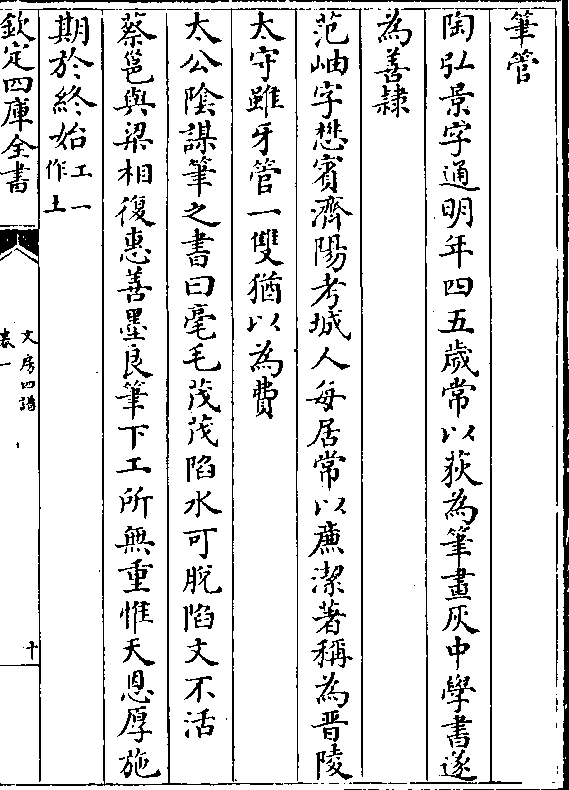 筆管
陶弘景字通明年四五歲常以荻為筆畫灰中學書遂
為善隸
范岫字懋賓濟陽考城人每居常以㢘潔著稱為晋陵
太守雖牙管一雙猶以為費
太公陰謀筆之書曰毫毛茂茂陷水可脫陷文不活
蔡邕與梁相復惠善墨良筆下工所無重惟天恩厚施
期於終始工一作土
欽定四庫全書
文房四譜
卷一
十